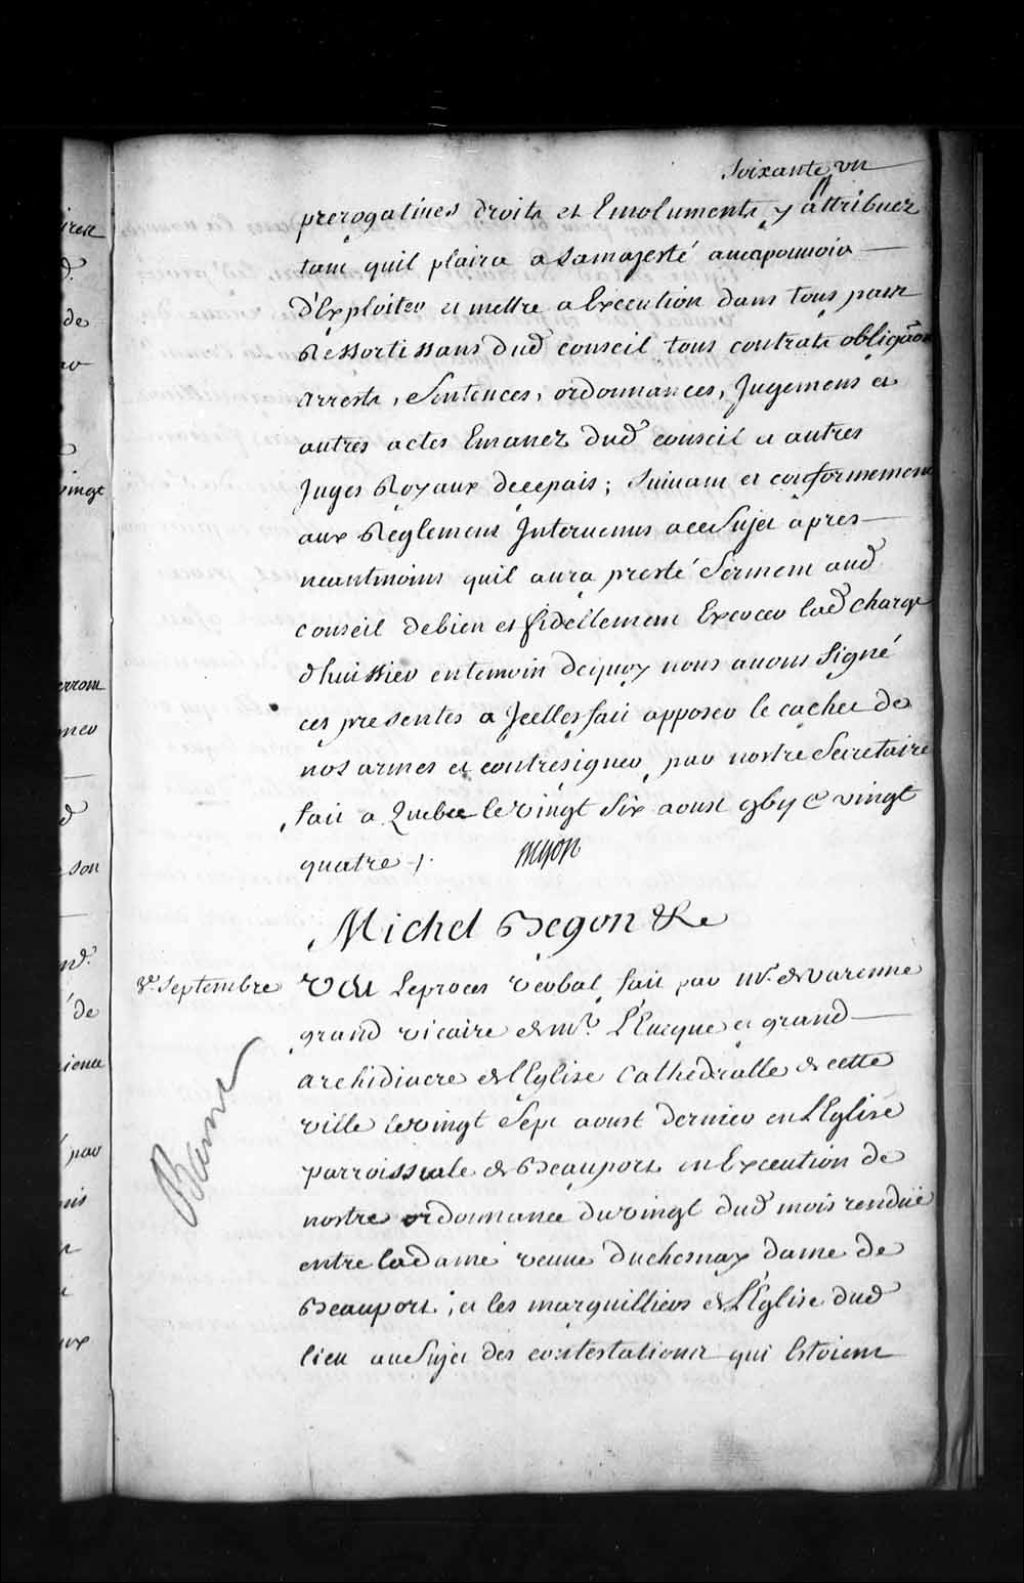 Soixante un
prerogatives droits et Emoluments y attribuez
tant quil plaira a samajesté avecpouvoir
d'Exploiter et mettre a Execution dans tous pais
Ressortissans dud conseil tous contrats obligãon
arrests, Sentences, ordonnances, Jugemens et
autres actes Emanez dud conseil et autres
Juges Royaux decepais; suivant et conformement
aux Reglemens Intervenus acesujet apres
neantmoins quil aura presté Serment aud
conseil debien et fidellement Exercer lad charge
dhuissier entemoin dequoy nous avons Signé
ces presentes a Jcelles fait apposer le cachet de
nos armes et contresigner par nostre Secretaire
fait a Quebec le vingt Six aoust gbij C vingt
quatre /.
Begon
Michel Begon &c
8e. Septembre
Veu Leproces verbal fait par Mr. de varenne
grand vicaire de Mr. L'Eveque et grand
archidiacre de l'Eglise Cathedralle de cette
ville levingt Sept aoust dernier en L'Eglise
parroissialle de Beauport en Execution de
nostre ordonnance duvingt dud mois rendüe
entre ladame veuve duchesnay dame de
Beauport, et les marguilliers de L'Eglise dud
lieu ausujet des contestations qui Estoient
iren
d.
de
vingt
son
de
par
aux